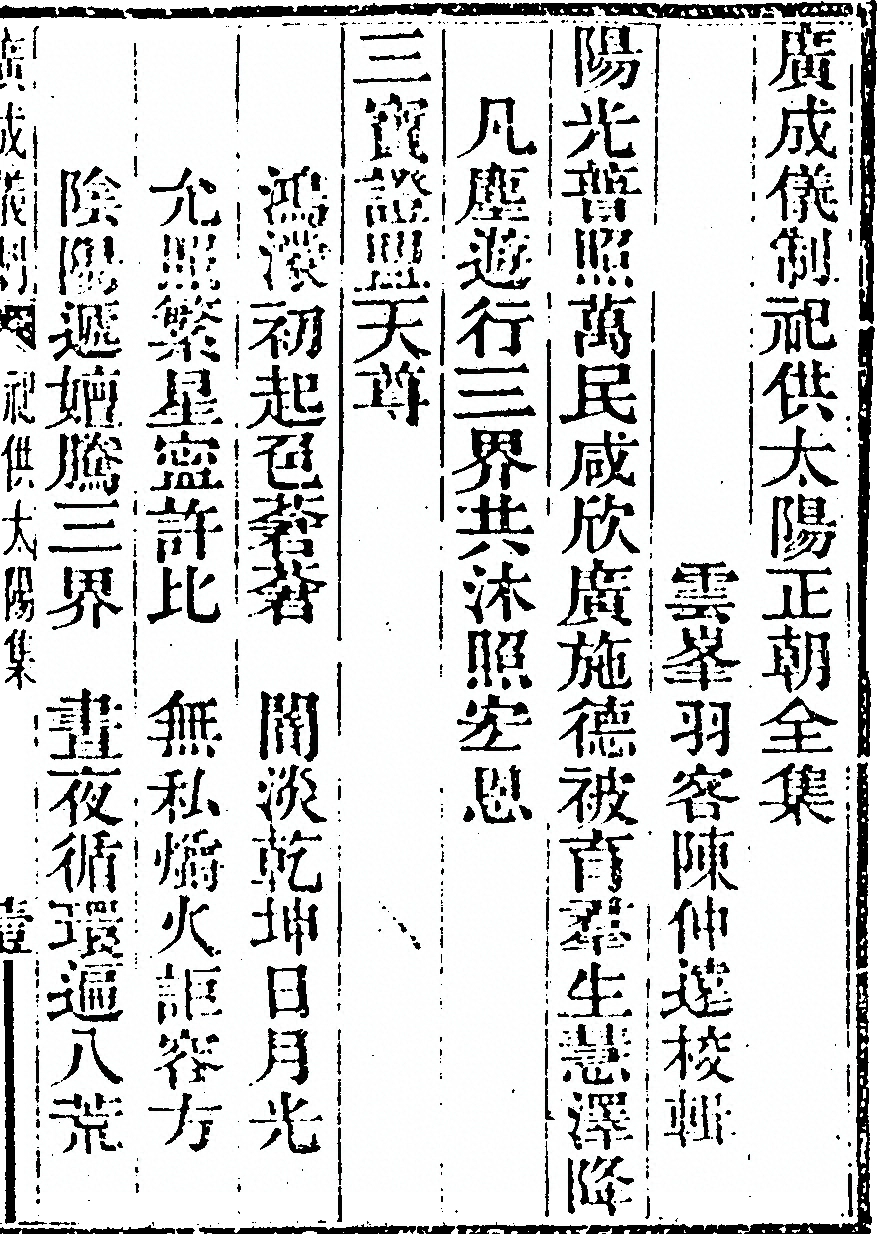 廣成儀制祀供太陽正朝全集
雲峯羽客陳仲遠校輯
陽光普照萬民咸欣廣施德被育羣生慧澤降
凡塵遊行三界共沐照宏恩
三寶證盟天尊
鴻濛初起色蒼蒼　闇淡乾坤日月光
允照繁星寧許比　無私爝火詎容方
陰陽遞嬗騰三界　晝夜循環遍八荒
廣成儀制　祀供太陽集　壹